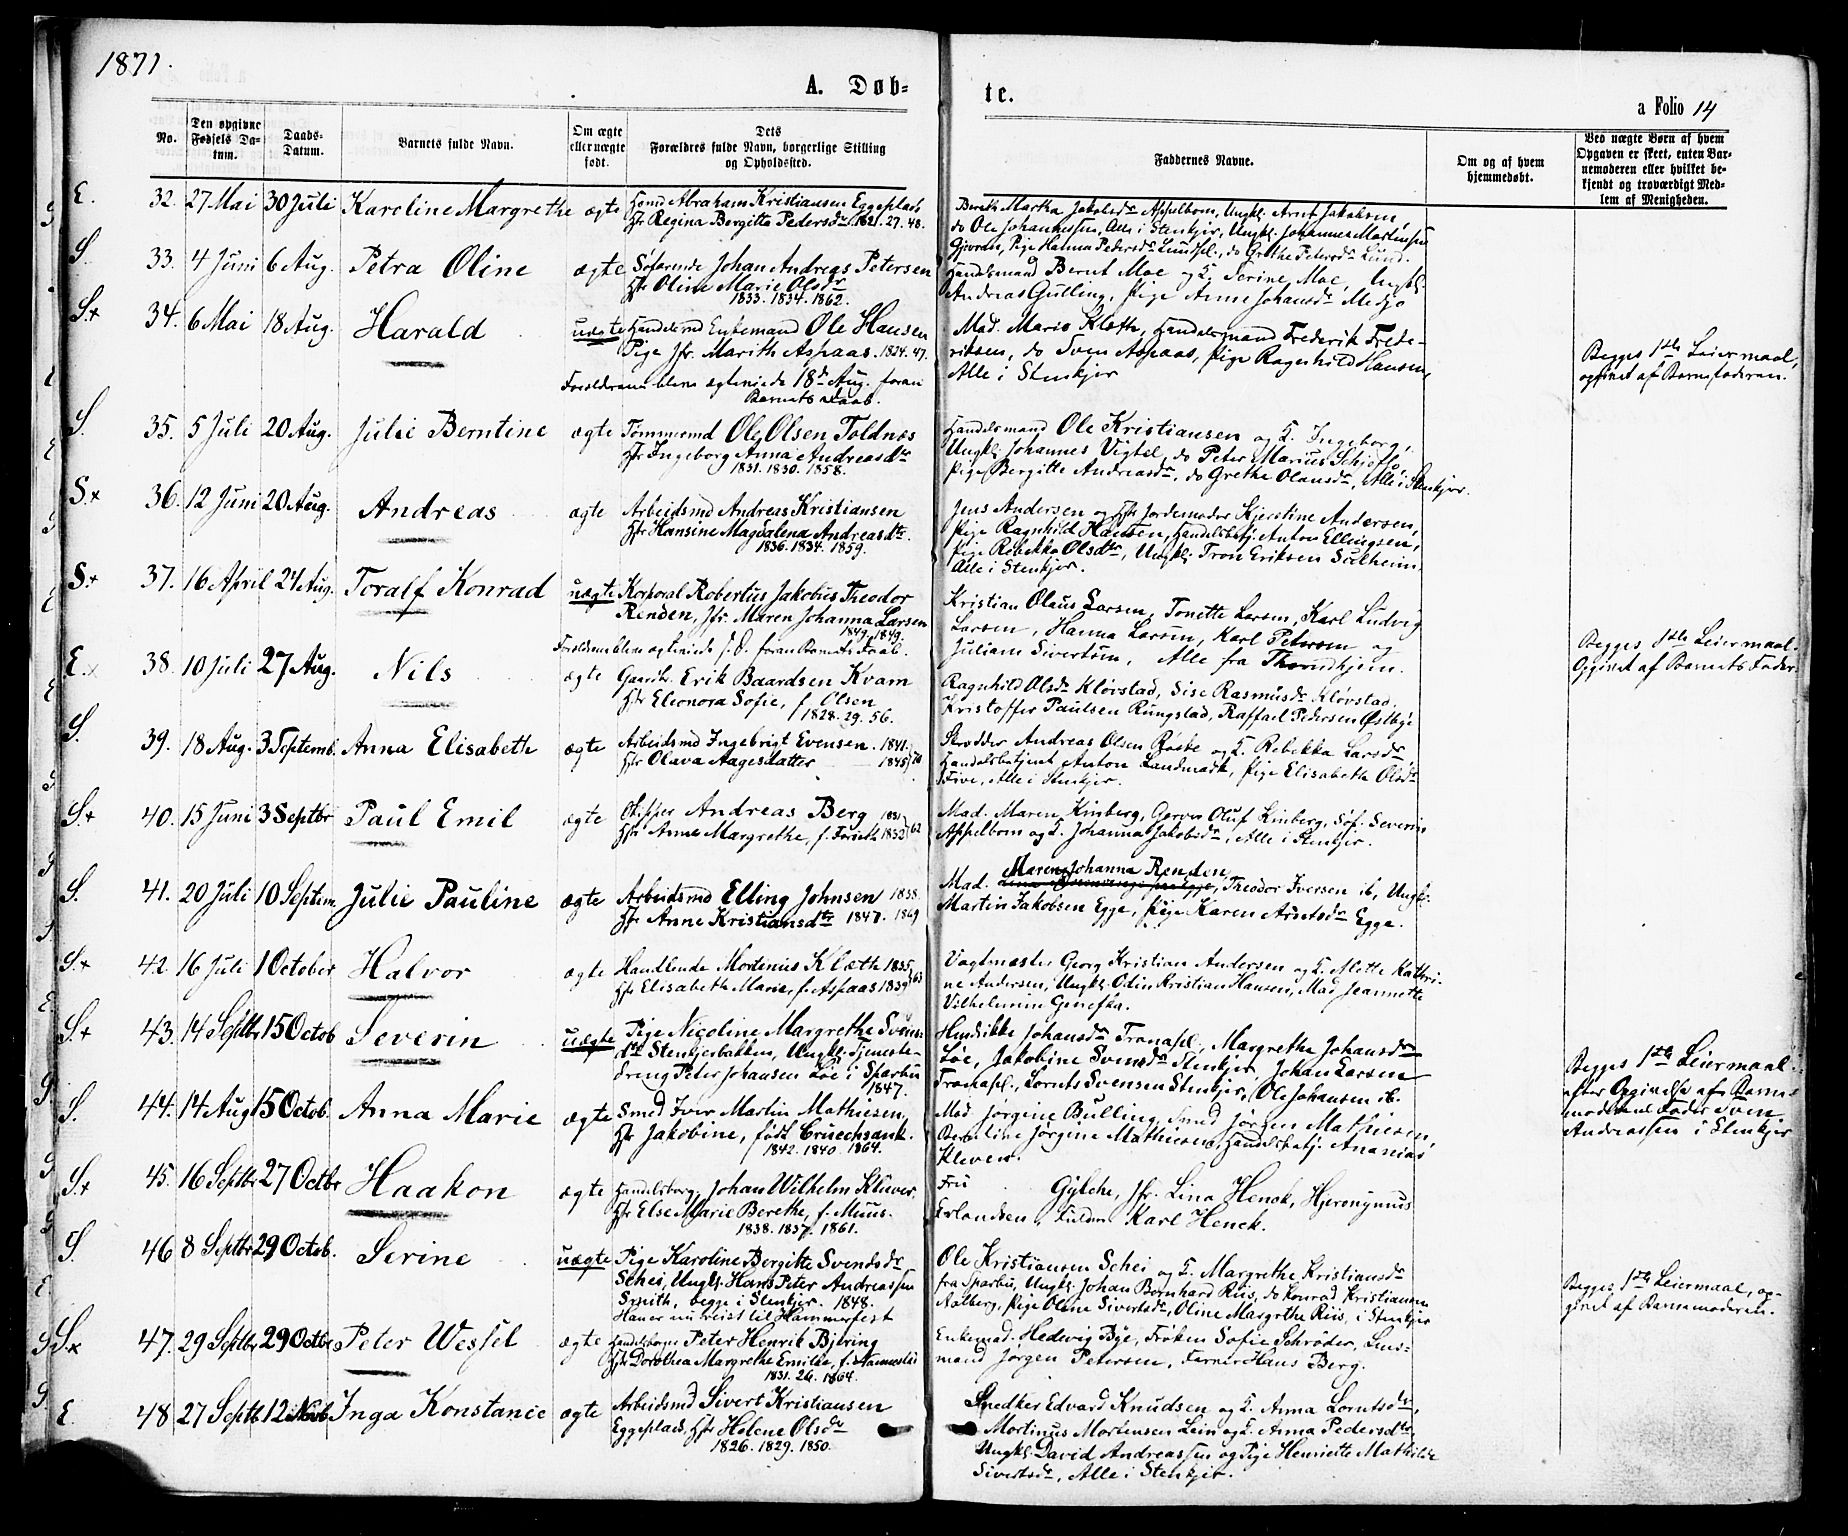 1871.
A. Døb-
te.
a Folio 14
No.
Den opgivne Fødsels Da-tum.
Daabs-Datum.
Barnets fulde Navn.
Om ægte eller uægte født.
Dets Forældres fulde Navn, borgerlige Stilling og Opholdssted.
Faddernes Navne.
Om og af hvem hjemmedøbt.
Ved uægte Børn af hvem Opgaven er skeet, enten Bar-nemoderen eller hvilket be-kjendt og troværdigt Med-lem af Menigheden.
E. 32. 27 Mai 30 Juli Karoline Margrethe ægte
Hsmd Abraham Kristiansen Eggeplads
Hfr Regina Bergitta Pedersdr. 1821. 27. 48.
Bereth Martha Jakobsdr Appelbom, Ungkl. Arnt Jakobsen,
do Ole Johannessen, Alle i Stenkjer, Ungkl. Johannes Martinsen
Gjevran, Pige Hanna Pedersdr Lundspl., do Grethe Petersdr Lund.
S. 33. 4 Juni 6 Aug. Petra Oline ægte
Søfarende Johan Andreas Petersen
Hfr Oline Marie Olsdr
1833. 1834. 1862.
Handelsmand Bernt Moe og K. Serine Moe, Ungkl.
Andreas Gulling, Pige Anne Johansdr Medjo
S.+ 34. 6 Mai 18 Aug. Harald uægte
Handelsmd Enkemand Ole Hansen
Pige Jfr. Marith Aspaas. 1824. 47.
Forældrene bleve ægteviede 18d Aug. foran
Barnets Daab.
Mad. Marie Klæth, Handelsmand Frederik Frede-
riksen, do Sven Aspaas, Pige Ragnhild Hansen,
Alle i Stenkjer
Begges 1ste Leiermaal,
opgivet af Barnefaderen.
S. 35. 5 Juli 20 Aug. Julie Berntine ægte
Tømmermd Ole Olsen Toldnæs
Hfr Ingeborg Anna Andreasdr
1831. 1830. 1858.
Handelsmand Ole Kristiansen og K. Ingeborg,
Ungkl. Johannes Vigtel, do Peter Marius Schjefte,
Pige Bergitte Andreasdr, do Grethe Olausdr, Alle i Stenkjer.
S.+ 36. 12 Juni 20 Aug. Andreas ægte
Arbeidsmd Andreas Kristiansen
Hfr Hansine Magdalena Andreasdtr.
1836. 1834. 1859.
Jens Andersen og Hfr Jordemoder Kjerstine Andersen,
Pige Ragnhild Hansen, Handelsbetj. Anton Ellingsen,
Pige Rebekka Olsdtr, Ungkl. Tron Eriksen Sulheim.
Alle i Stenkjer.
S.+ 37. 16 April 24 Aug. Toralf Konrad uægte
Korporal Robertus Jakobus Theodor
Renden, Jfr. Maren Johanna Larsen
1849. 1849.
Forældrene bleve ægteviede s. D. foran Barnets Daab.
Kristian Olaus Larsen, Tonette Larsen, Karl Ludvig
Larsen, Hanna Larsen, Karl Petersen og
Juliane Sivertsen, Alle fra Throndhjem.
Begges 1ste Leiermaal.
Opgivet af Barnets Fader.
E. 38. 10 Juli 27 Aug. Nils ægte
Gaardbr. Erik Baardsen Kvam
Hfr Eleonora Sofie, f. Olsen
1828. 29. 56.
Ragnhild Olsdr Kløvstad, Sise Rasmusdr Kløvstad,
Kristoffer Paulsen Rungstad, Raffael Pedersen Østbye
S. 39. 18 Aug. 3 Septemb. Anna Elisabeth ægte
Arbeidsmd Ingebrigt Evensen. 1841.
Hfr Olava Aagesdatter 1845. 70
Skrædder Andreas Olsen Røske og K. Rebekka Larsdr,
Handelsbetjent Anton Landmark, Pige Elisabeth Olsdr
Five, Alle i Stenkjer.
S.+ 40. 15 Juni 3 Septbr Paul Emil ægte
Skipper Andreas Berg 1831
Hfr Anne Margrethe, f. 1833 62
Mad. Maren Kinberg, Garver Oluf Kinberg, Søf. Severin
Appelbom og K. Johanna Jakobsdr, Alle i Stenkjer.
S. 41. 20 Juli 10 Septem. Julie Pauline ægte
Arbeidsmd Elling Johnsen 1838.
Hfr Anne Kristiansdtr 1847. 1869
Mad. Maren Johanna Renden, Theodor Iversen ib., Ungk.
Martin Jakobsen Egge, Pige Karen Arntsdr Egge.
S.+ 42. 16 Juli 1 October Halvor ægte
Handlende Mortenius Klæth 1835
Hfr Elisabeth Marie, f. Aspaas 1839 63
Vagtmester Georg Kristian Andersen og K. Mette Kathri-
ne Andersen, Ungkl. Odin Kristian Hansen, Mad Jeannette
Vilhelmine
S.+ 43. 14 Septbr 15 Octob Severin uægte
Pige Nicoline Margrethe Svens-
dtr Stenkjerbakken, Ungkl. Tjeneste-
dreng Peter Johansen Løe i Sparbu
1847.
Hendrikke Johansdr Tranaspl, Margrethe Johansdr
Løe, Jakobine Svensdr Stenkjer, Johan Larsen
Tranaspl., Lornts Svensen Stenkjer, Ole Johansen ib.
Begges 1ste Leiermaal
efter Opgivelse af Barne-
moderens Fader Sven
Andreassen i Stenkjer
S. 44. 14 Aug 15 Octob. Anna Marie ægte
Smed Iver Martin Mathiesen,
Hfr Jakobine, født
1842. 1840. 1864.
Mad. Jørgine Bulling, Smed Jørgen Mathiesen,
Berntine Jørgine Mathiesen, Handelsbetj. Ananias
Kleven.
S.+ 45. 16 Septbr 27 Octbr Haakon ægte
Handelsborg. Johan Wilhelm Klüwer.
Hfr Else Marie Berethe, f. Muus.
1838. 1837. 1861.
Fru Gylche, Jfr. Lina Henck, Hjeronymus
Erlandsen, Fuldm. Karl Henck.
S. 46 8 Septbr 29 Octob. Serine uægte
Pige Karoline Bergitte Svendsdr
Schei, Ungkl. Hans Peter Andreassen
Smith, begge i Stenkjer. 1848.
Han er nu reist til Hammerfest
Ole Kristiansen Schei og K. Margrethe Kristiansdr
fra Sparbu, Ungkl. Johan Bernhard Riis, do Konrad Kristiansen
Aalberg, Pige Oline Sivertsdr, Oline Margrethe Riis, i Stenkjer
Begges 1ste Leiermaal, op-
givet af Barnemoderen.
S.x 47. 29 Septbr 29 Octbr Peter Wessel ægte
Handelsborg. Peter Henrik Bjelring
Hfr Dorothea Margrethe Emilie, f. Nannestad
1831. 26. 1864.
Enkemad. Hedevig Bye, Frøken Sofie Schrøder, Lens-
mand Jørgen Petersen, Farver Hans Berg.
E. 48 27 Septb 12 Novb Inga Konstance ægte
Arbeidsmd Sivert Kristiansen
Eggeplads, Hfr Helene Olsdr
1826. 1829. 1850.
Snedker Edvard Knudsen og K. Anna Lorntsdr,
Mortinus Mortensen Lein og K. Anna Pedersdtr,
Ungkl David Andreassen og Pige Henriette Mathilde
Sivertsdr, Alle i Stenkjer.